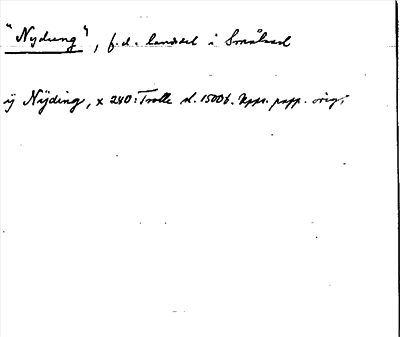 "Nydung", f.d. landsdel i Småland
ij Nÿding, x 240: Trolle sl. 1500 t. Upps. papp. orig.